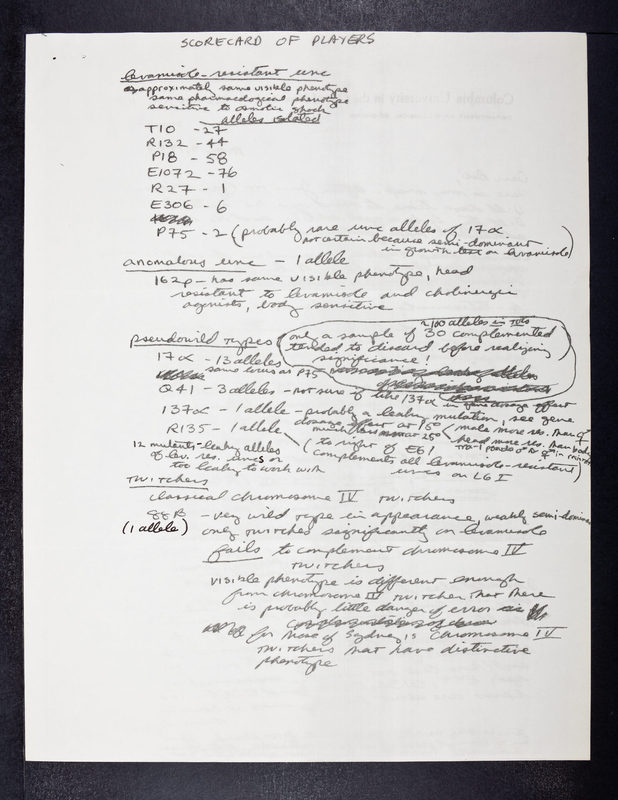 SCORECARD OF PLAYERS
levamisole-resistant unc
approximately same visible phenotype
same pharmacological phenotype
sensitive to osmotic shock
alleles isolated
T10 - 27
R132 - 44
P18 - 58
E1072 - 76
R27 - 1
E306 - 6
P75 - 2 (probably rare unc alleles of 17α
not certain because semi-dominant
in growth test on levamisole)
anomalous unc - 1 allele
162p - has same visible phenotype, head
resistant to levamisole and cholinergic
agonists, body sensitive
~100 alleles in toto
pseudowild types (only a sample of 30 complemented
tended to discard before realizing
significance!)
17α - 13 alleles
same locus as P75
Q41 - 3 alleles - not sure if like 137α in gene dosage effect
137α - 1 allele - probably a leaky mutation, see gene
dosage effect at 15°
much less at 25°
(male more res. than
head more res. than body
R135 - 1 allele
(to right of E61
complements all levamisole-resistant
uncs on LG I)
12 mutants - leaky alleles
of lev. res. uncs or
too leaky to work with
twitchers
classical chromosome IV twitchers
88B - very wild type in appearance, weakly semi-dominant
(1 allele)
only twitches significantly on levamisole
fails to complement chromosome IV
twitchers
visible phenotype is different enough
from chromosome IV twitcher that there
is probably little danger of error
for those of Sydney's chromosome IV
twitchers that have distinctive
phenotype